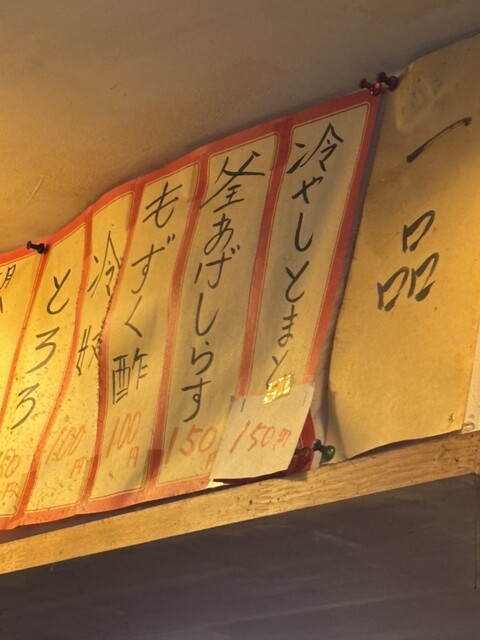 一品
冷やしとまと
150円
釜あげしらす
150円
もずく酢
100円
冷奴
とろろ
100円
50円